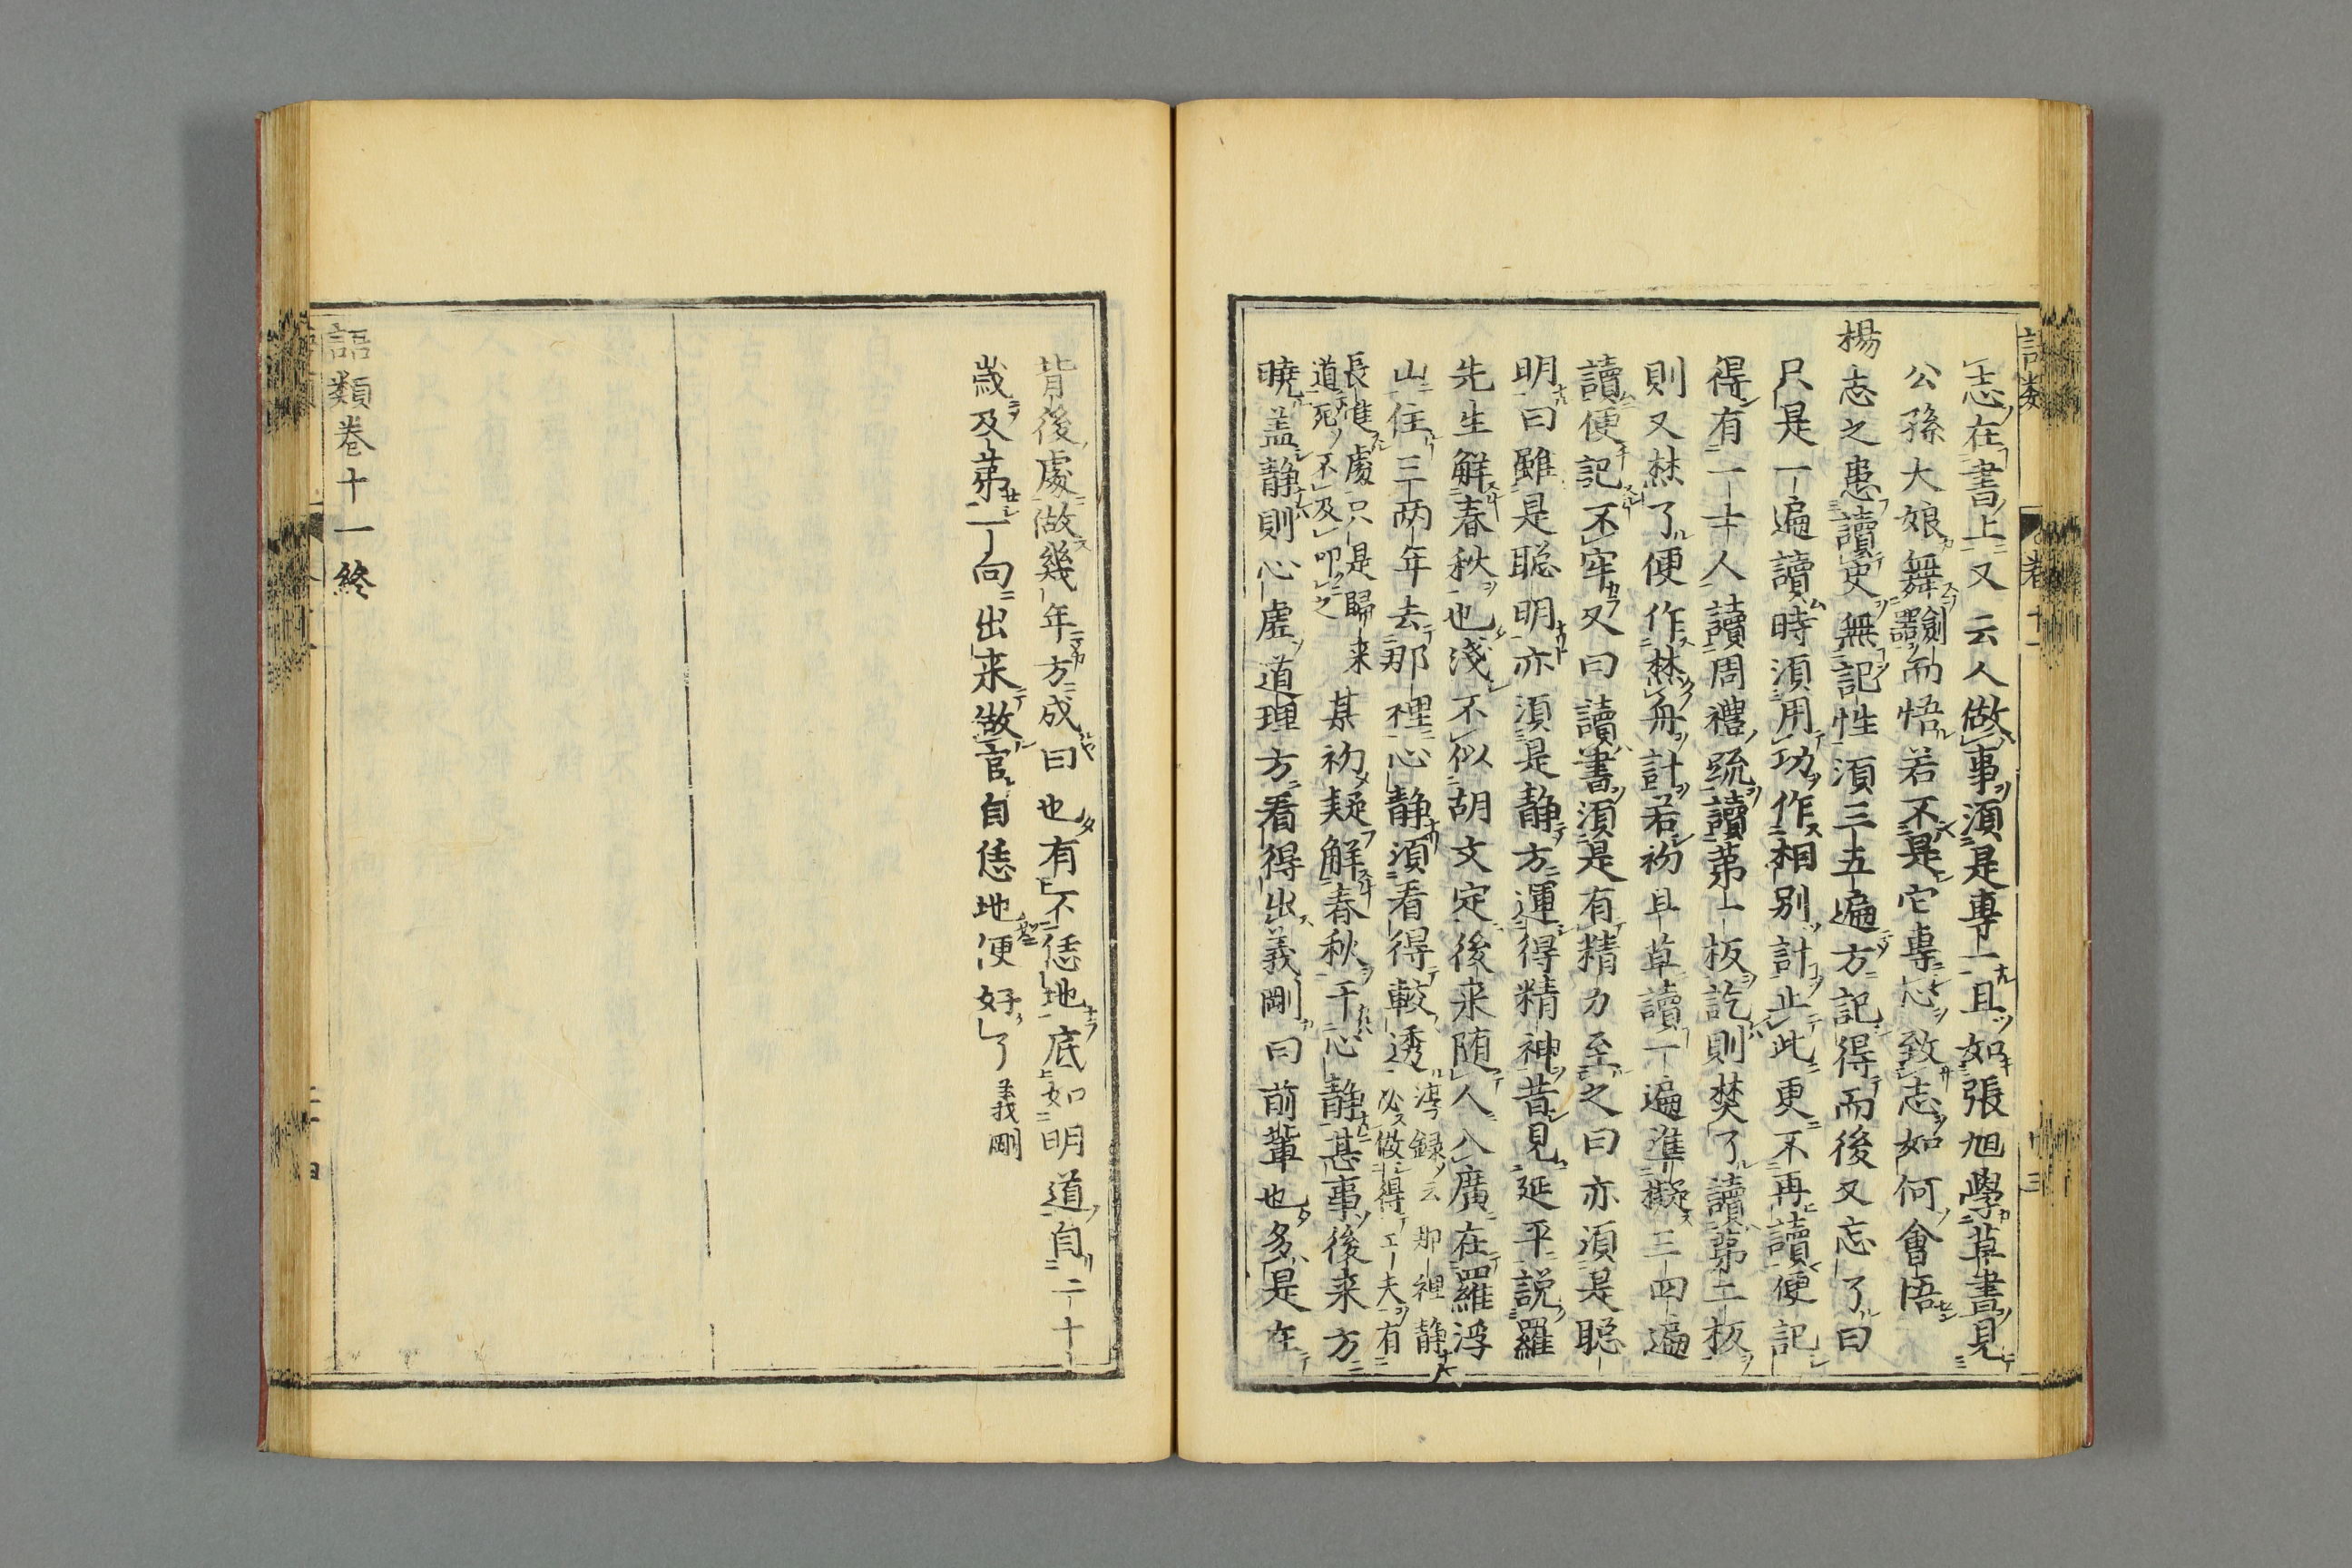 志在書上又云人做事須是專一且如張旭學草書見
公孫大娘舞劍器而悟若不是它專心致志如何會悟
楊志之患讀史無記性須三五遍方記得而後又忘了曰
只是一遍讀時須用功作相別計止此更不再讀便記
得有一士人讀周禮疏讀第一板訖則焚了讀第二板
則又焚了便作焚舟計若初且草讀一遍準擬三四遍
讀便記不牢又曰讀書須是有精力至之曰亦須是聡
明曰雖是聡明亦須是静方運得精神昔見延平説羅
先生解春秋也淺不似胡文定後来随人入廣在羅浮
山住三两年去那裡心静須看得較透淳録云那裡静必做得工夫有
長進處只是歸来道死不及叩之某初疑解春秋干心静甚事後来方
曉盖静則心虚道理方看得出義剛曰前輩也多是在
背後處做幾年方成曰也有不恁地底如明道自二十
歳及第一向出来做官自恁地便好了義剛
語類巻十一終